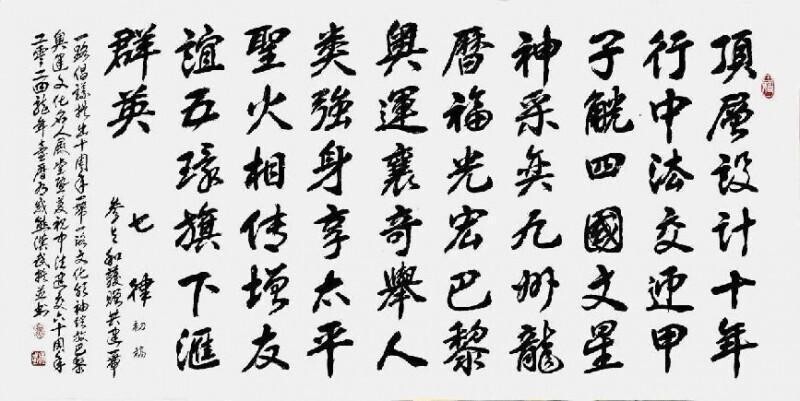 頂層設計十年
行中法交迎甲
子觥四國文星
神采奕九州龍
曆福光宏巴黎
奧運襄奇舉人
类強身享太平
聖火相傳增友
誼五環旗下滙
群英
七律 初稿
共建一帶
一路倡議提出十周年一帶一路文化領袖巴黎
奧運文化名人展祝中法建交六十周年
二零二四龍年